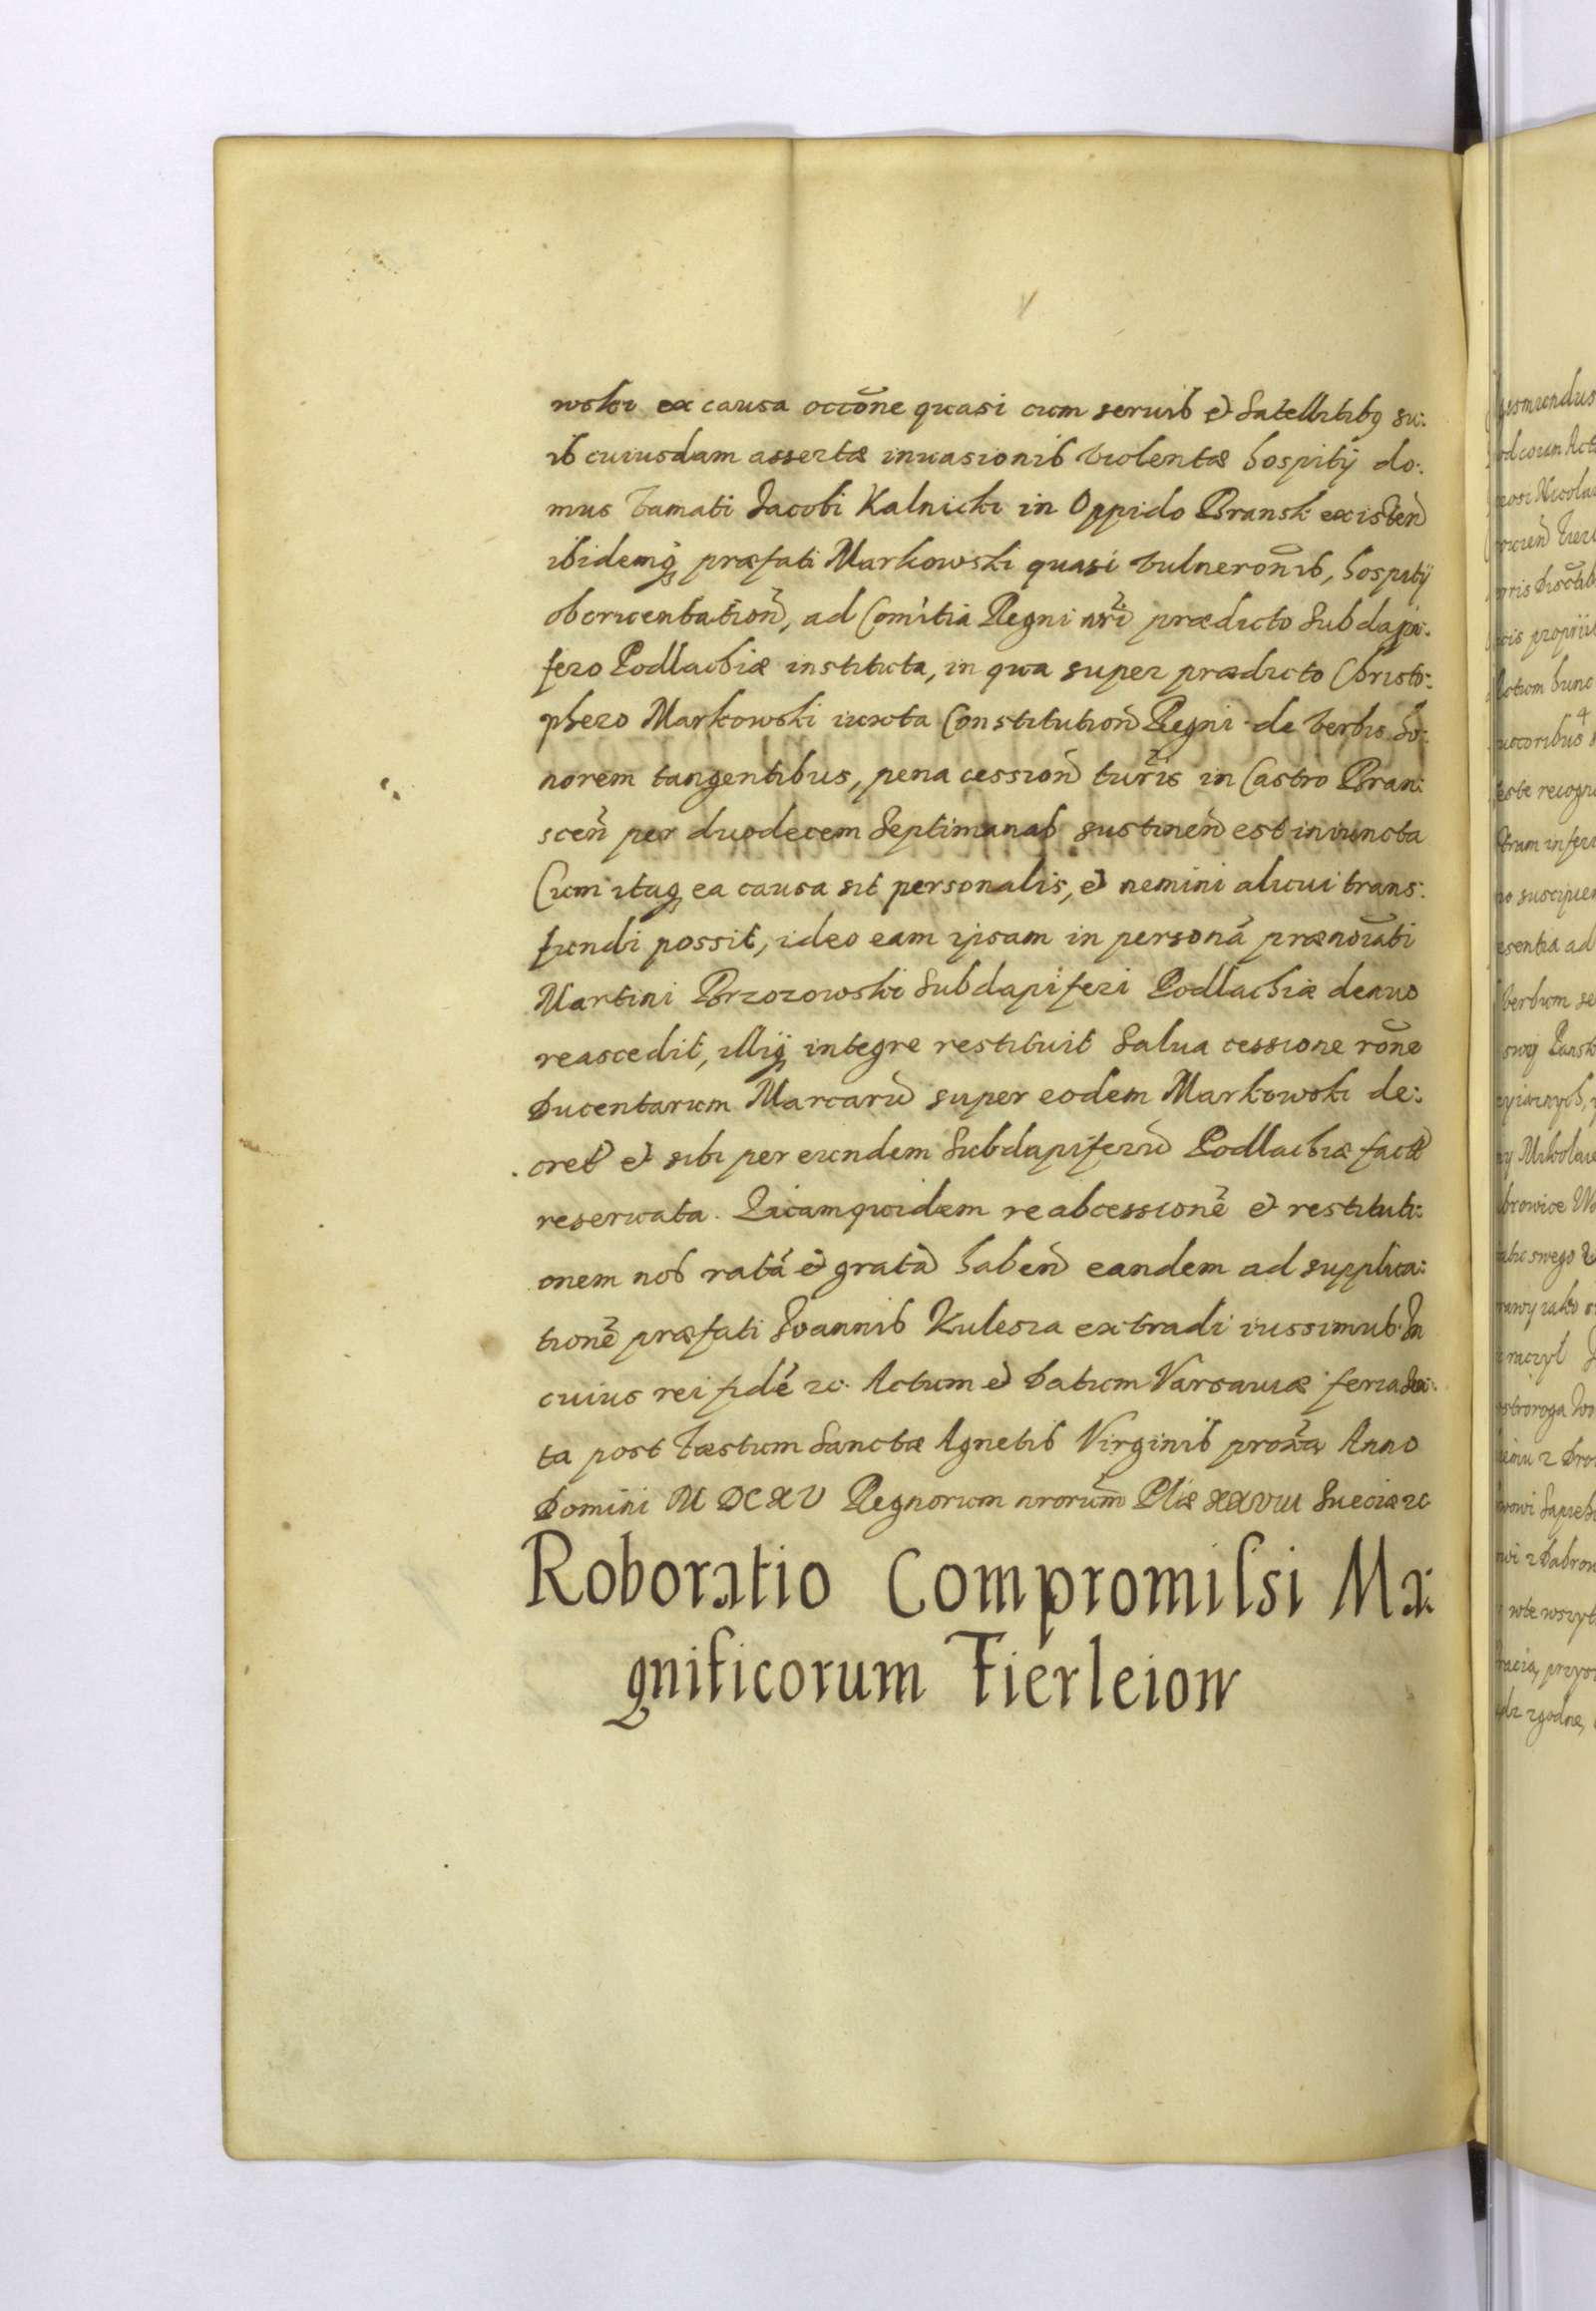 wski ex causa occōne quasi cum seruis et Satellitibq su:
is cuiusdam assertæ inuasionis violentæ hospitÿ do:
mus famati Jacobi Kalnicki in Oppido Bransk existeñ
ibidemq præfati Markowski quasi vulneroñis, hospitÿ
obcruentatioñ, ad Comitia Regni nr̃i prædicto Subdapi:
fero Podlachiæ instituta, in qua super prædicto Christo:
phero Markowski iuxta Constitutioñ Regni de verbis ho:
norem tangentibus, pena cessioñ tur̃is in Castro Bran:
sceñ per duodecem Septimanas sustineñ est iniuncta
Cum itaq ea causa sit personalis, et nemini alicui trans:
fundi possit, ideo eam ipsam in personā prænoīati
Martini Brzozowski Subdapiferi Podlachiæ denuo
reascedit, illiq integre restituit Salua cessione rōne
Ducentarum Marcarū super eodem Markowski de:
cret et sibi per eundem Subdapiferū Podlachiæ fact
reseruata. Quamquidem reabcessionē et restituti:
onem nos ratā et gratā habeñ eandem ad supplica:
tionē præfati Joannis Kulesza extradi iussimus. In
cuius rei fidē 2c. Actum et Datum Varsauiæ feria Sex:
ta post Fæstum Sanctæ Agnetis Virginis prox̃a Anno
Domini MDCXV Regnorum nrorum̃ Pliæ XXVIII Sueciæ 2c
Roboratio Compromissi Ma:
gnificorum Fierleiow